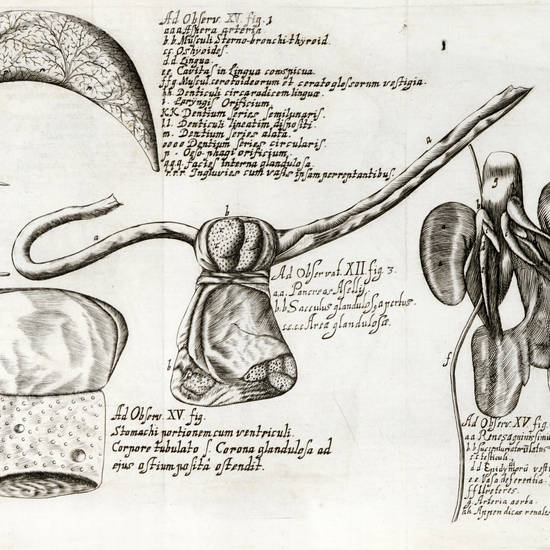 Ad Observ. XV. fig. 1
a a a Aspera arteria
b. b. Musculi Sterno-bronchi-thyroid.
c c Os hyoides.
d. d. Lingua.
e e. Cavitas in Lingua conspicua.
f f g Muscul. ceratoideorum et ceratoglossorum vestigia.
hh Denticuli circa radicem linguæ.
i. Laryngis Orificium.
KK Dentium series semilunaris.
ll. Denticuli lineatim dispositi.
m. Dentium series alata.
o o o o Dentium series circularis.
p - Oeso-phagi orificium.
q. q. q. Facies interna glandulosa.
r. r. r. Ingluvies cum vasis ipsam perreptantibus.
a
g
b
a
Ad Observat. XII fig. 3.
a. a. Pancreas Aselli
b. b Sacculus glandulosq apertus.
c c. c c Area glandulosæ
b
f
Ad Observ. XV. fig.
Stomachi portionem cum ventriculi.
Corpore tubulato s. Corona glandulosa ad
ejus ostium posita ostendit.
Ad Observ. XV. fig
c c testiculi.
e e. Vasa deferentia.
f f Ureteres.
g. Arteria aorta.
hh Appendices renales